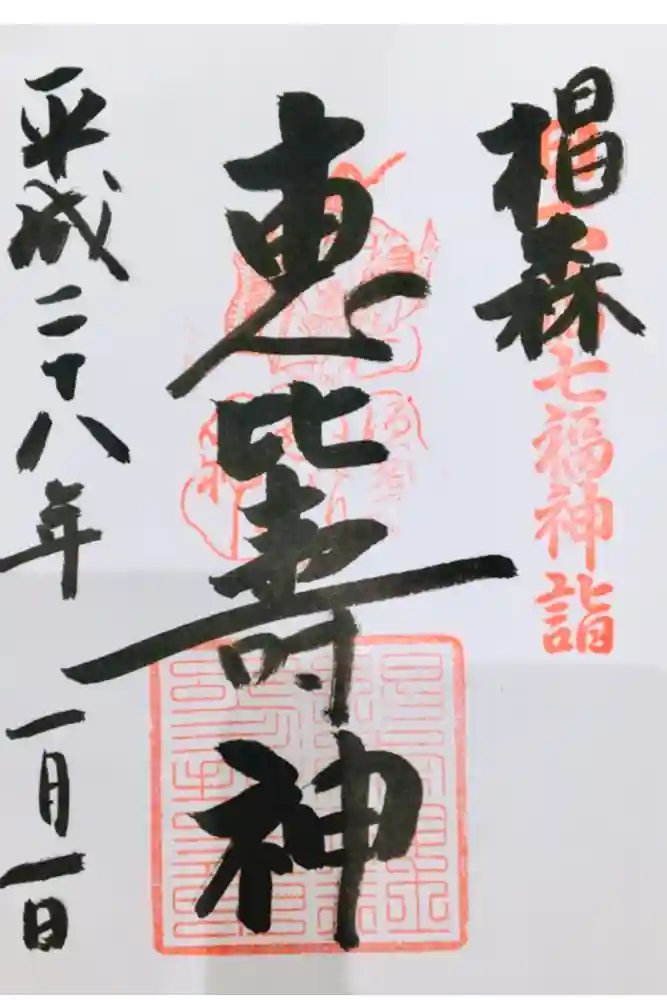 椙森
七福神詣
恵比寿神
平成二十八年 一月一日